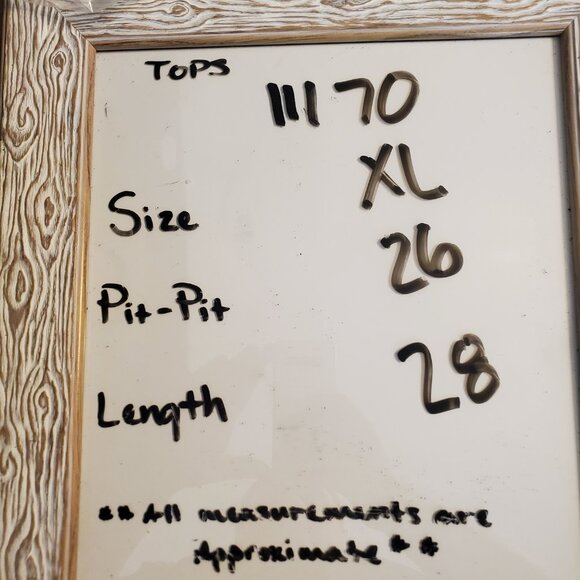 TOPS
11170
Size XL
Pit-Pit 26
Length 28
** All measurements are
Approximate **